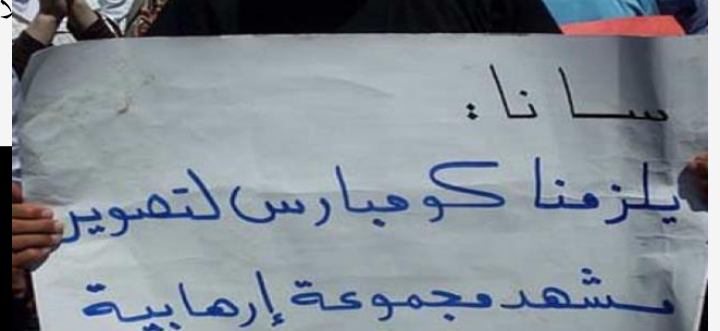 سانا :
يلزمنا كومبارس لتصوير
مشهد مجموعة إرهابية